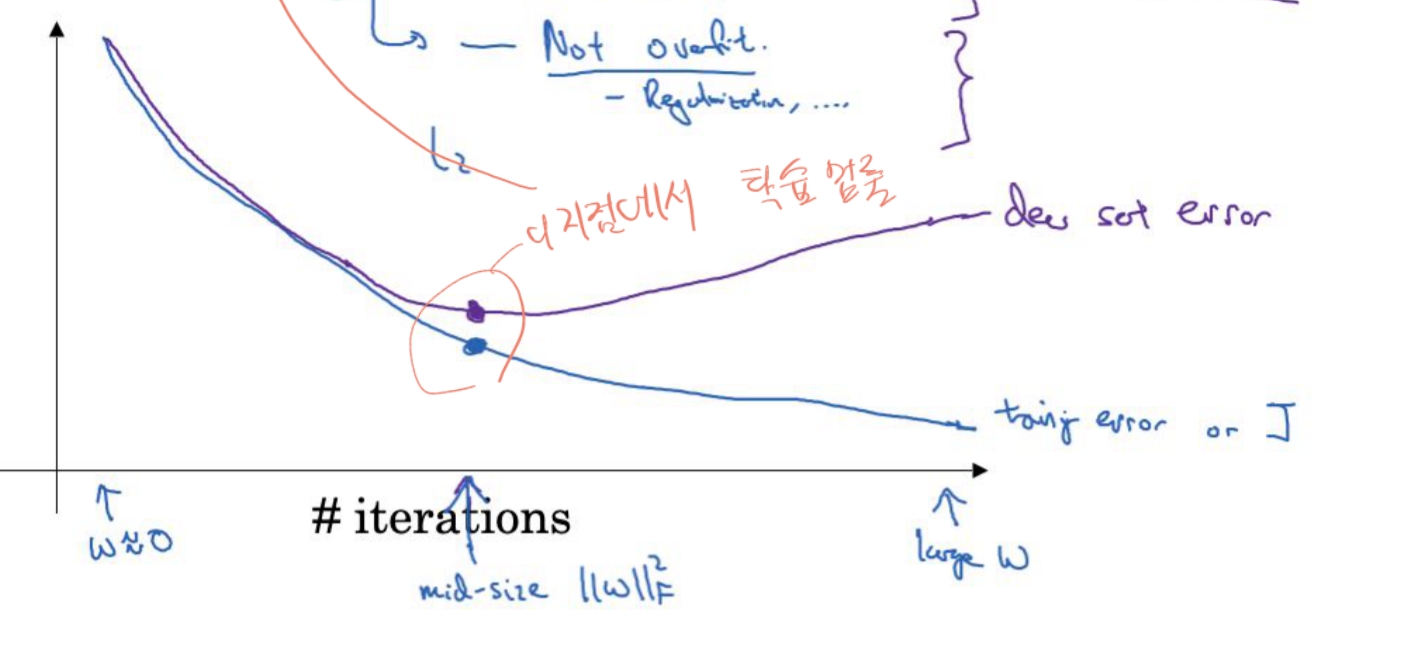 — Not overfit.
- Regularization, ....
L2
이 지점에서 학습 멈춤
dev set error
error or J
w≈0
# iterations
mid-size ||w||²F
large w